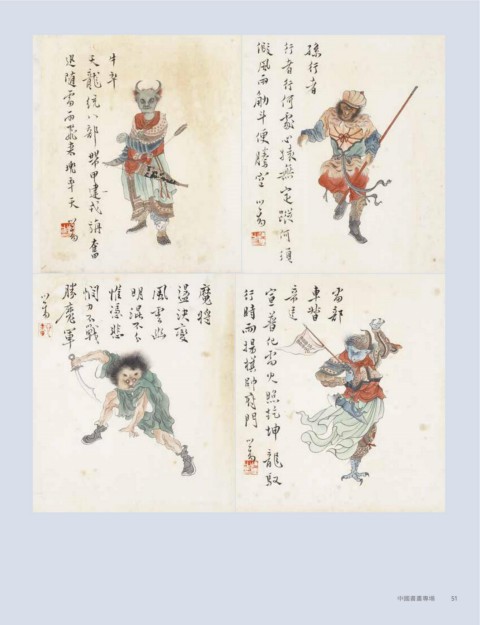 孫行者
行者行何處心猿無定蹤何須
假風雨觔斗便騰空 心畬
牛卒
天龍統八部擐甲建戎旃奮
迅隨雷雨飛來兜率天 心畬
雷部
宣普化雷火照乾坤龍馭
行時雨揚旗 心畬
魔將
蕩決變
風雲幽
明混不分
惟憑悲
憫力不戰
勝魔軍
心畬
中國書畫專場 51